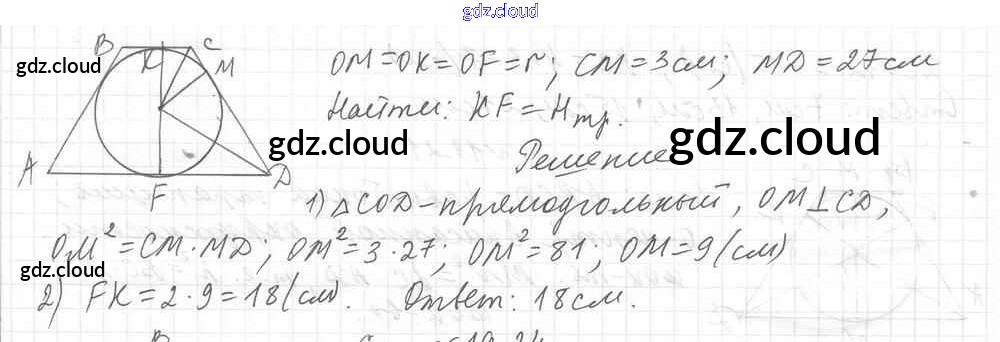 gdz.cloud
B K C M
gdz.cloud
OM = OK = OF = r; CM = 3 см; MD = 27 см
Найти: KF = Hтр.
gdz.cloud gdz.cloud
Решение
A F D
1) △COD – прямоугольный, OM ⊥ CD,
OM² = CM · MD; OM² = 3 · 27; OM² = 81; OM = 9 (см)
gdz.cloud
2) FK = 2 · 9 = 18 (см). Ответ: 18 см.